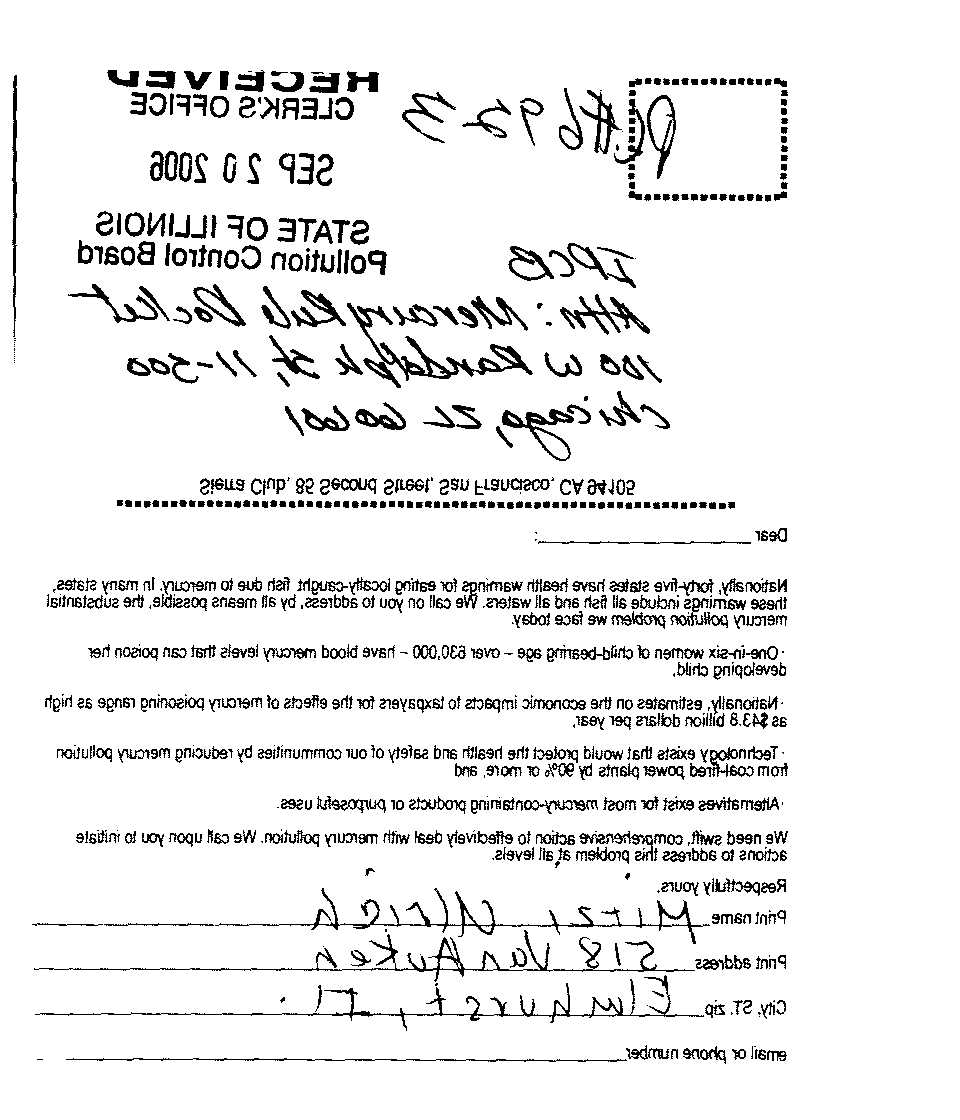 RECEIVED
CLERK'S OFFICE
SEP 20 2006
STATE OF ILLINOIS
Pollution Control Board
PC#6923
IPCB
Attn: Mercury Rule Docket
100 W Randolph St, 11-500
Chicago, IL 60601
Sierra Club, 85 Second Street, San Francisco, CA 94105
Dear ____________________:
Nationally, forty-five states have health warnings for eating locally-caught fish due to mercury. In many states,
these warnings include all fish and all waters. We call on you to address, by all means possible, the substantial
mercury pollution problem we face today.
·One-in-six women of child-bearing age – over 630,000 – have blood mercury levels that can poison her
developing child,
·Nationally, estimates on the economic impacts to taxpayers for the effects of mercury poisoning range as high
as $43.8 billion dollars per year,
·Technology exists that would protect the health and safety of our communities by reducing mercury pollution
from coal-fired power plants by 90% or more, and
·Alternatives exist for most mercury-containing products or purposeful uses.
We need swift, comprehensive action to effectively deal with mercury pollution. We call upon you to initiate
actions to address this problem at all levels.
Respectfully yours,
Print name Mitzi Ulrich
Print address 518 Van Auken
City, ST, zip Elmhurst, Il
email or phone number